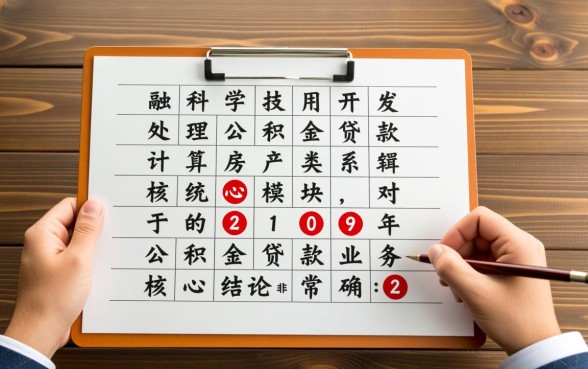 融科学技用开发
处理公积金贷款
计算房产类系辑
核统心模块，对
于的2109年
公积金贷款业务
核心结论非常确:2